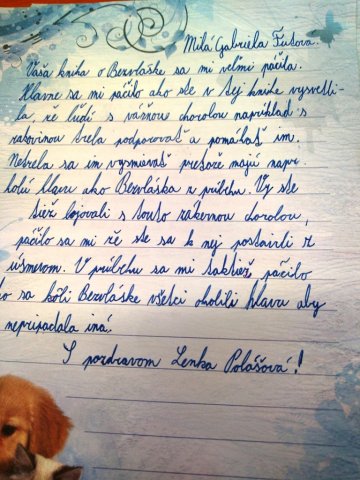 Milá Gabriela Futová.
Vaša kniha o Bezvláske sa mi veľmi páčila.
Hlavne sa mi páčilo ako ste v tej knihe vysvetli-
la, že ľudí s vážnou chorobou napríklad s
rakovinou treba podporovať a pomáhať im.
Netreba sa im vysmievať pretože majú napr.
holú hlavu ako Bezvláska z príbehu. Vy ste
tiež bojovali s touto zákernou chorobou,
páčilo sa mi že ste sa k nej postavili z
úsmevom. V príbehu sa mi taktiež páčilo
ko sa kôli Bezvláske všetci oholili hlavu aby
nepripadala iná.
S pozdravom Lenka Polášová!